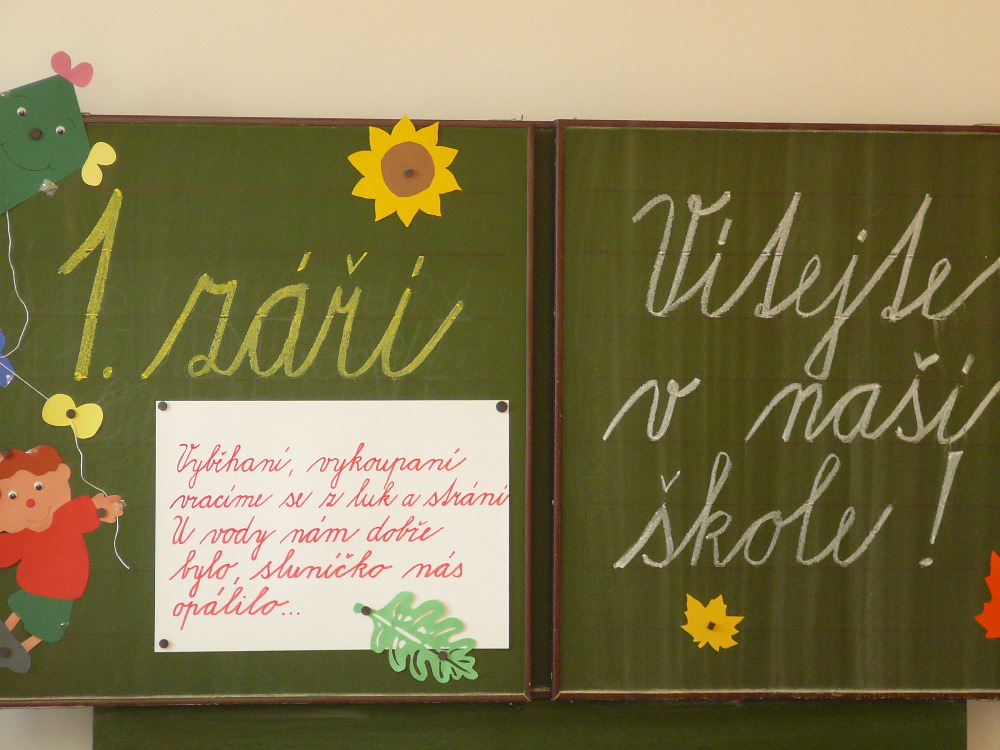 1. září
Vyběhaní, vykoupaní
vracíme se z luk a strání
U vody nám dobře
bylo, sluníčko nás
opálilo...
Vítejte
v naší
škole!